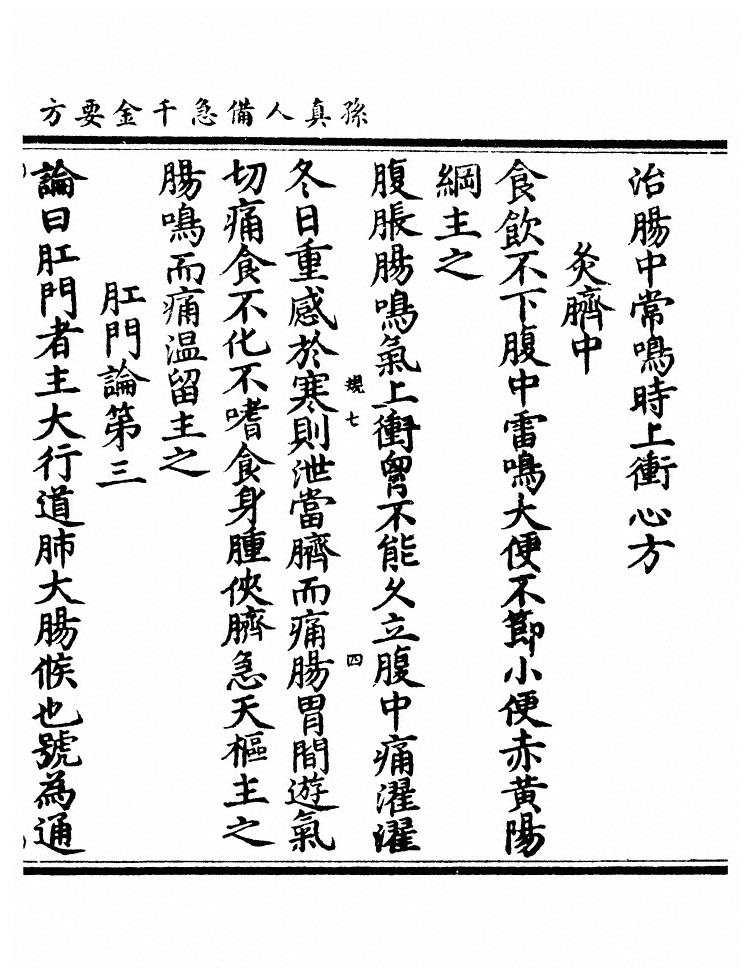 孫真人備急千金要方
治腸中常鳴時上衝心方
灸臍中
食飲不下腹中雷鳴大便不節小便赤黃陽
綱主之
腹脹腸鳴氣上衝胷不能久立腹中痛濯濯
七
四
冬日重感於寒則泄當臍而痛腸胃間遊氣
切痛食不化不嗜食身腫俠臍急天樞主之
腸鳴而痛温留主之
肛門論第三
論曰肛門者主大行道肺大腸候也號為通